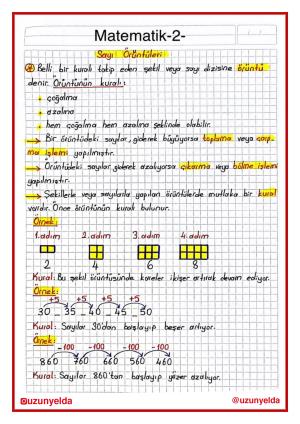 Matematik-2-
Sayı Örüntüleri
Belli bir kuralı takip eden şekil veya sayı dizisine örüntü
denir. Örüntünün kuralı:
çoğalma
azalma
hem çoğalma hem azalma şeklinde olabilir.
→ Bir örüntüdeki sayılar, giderek büyüyorsa toplama veya çarp-
ma işlemi yapılmıştır.
→ Örüntüdeki sayılar giderek azalıyorsa çıkarma veya bölme işlemi
yapılmıştır.
→ Şekillerle veya sayılarla yapılan örüntülerde mutlaka bir kural
vardır. Önce örüntünün kuralı bulunur.
Örnek:
1. adım 2. adım 3. adım 4. adım
2 4 6 8
Kural: Bu şekil örüntüsünde kareler ikişer artarak devam ediyor.
Örnek:
+5 +5 +5 +5
30 _ 35 _ 40 _ 45 _ 50
Kural: Sayılar 30'dan başlayıp beşer artıyor.
Örnek:
-100 -100 -100 -100
860 760 660 560 460
Kural: Sayılar 860'tan başlayıp yüzer azalıyor.
@uzunyelda @uzunyelda